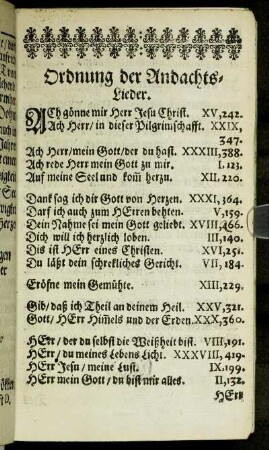 Ordnung der Andachts-
Lieder.
ACh gönne mir Herr Jesu Christ. XV, 242.
Ach Herr/ in dieser Pilgrimschafft. XXIX,
347.
Ach Herr/mein Gott/der du hast. XXXIII, 388.
Ach rede Herr mein Gott zu mir. I. 123.
Auf meine Seel und kom̃ herzu. XII. 220.
Dank sag ich dir Gott von Herzen. XXXI, 364.
Darf ich auch zum HErren behten. V, 159.
Dein Nahme sei mein Gott geliebt. XVIII, 266.
Dich will ich herzlich loben. III, 140.
Dis ist HErr eines Christen. XVI, 251.
Du läßt dein schrekliches Gericht. VII, 184.
Eröfne mein Gemühte. XIII, 229.
Gib/ daß ich Theil an deinem Heil. XXV, 321.
Gott/ HErr Him̃els und der Erden. XXX, 360.
HErr/ der du selbst die Weißheit bist. VIII, 191.
HErr/ du meines Lebens Licht. XXXVIII, 419.
HErr Jesu/ meine Lust. IX. 199.
HErr mein Gott/ du bist mir alles. II, 132.
HErr